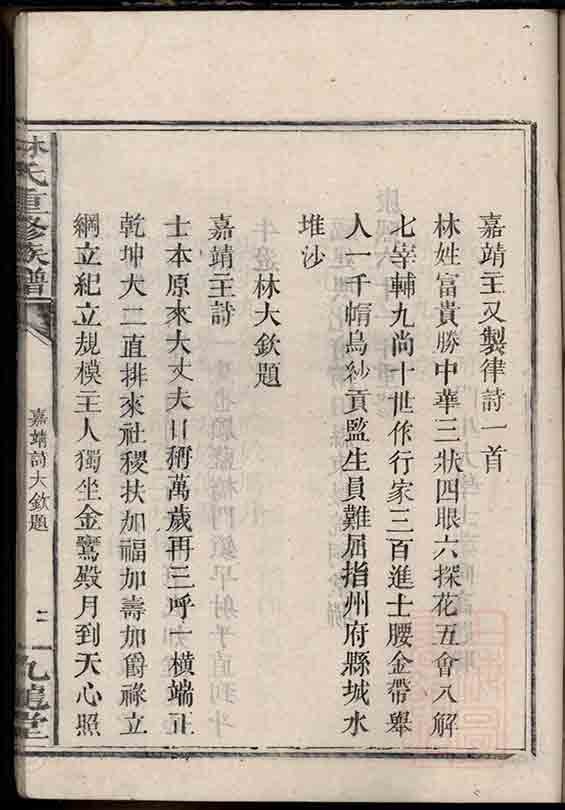 嘉靖主又製律詩一首
林姓富貴勝中華三狀四眼六探花五會八解
七宰輔九尚十世作行家三百進士腰金帶舉
人一千幘烏紗貢監生員難屈指州府縣城水
堆沙
林大欽題
嘉靖主詩
士本原來大丈夫口稱萬歲再三呼一橫端正
乾坤大二直排來社稷扶加福加壽加爵祿立
綱立紀立規模主人獨坐金鸞殿月到天心照
林氏重修族譜
嘉靖詩大欽題
二
九龍堂